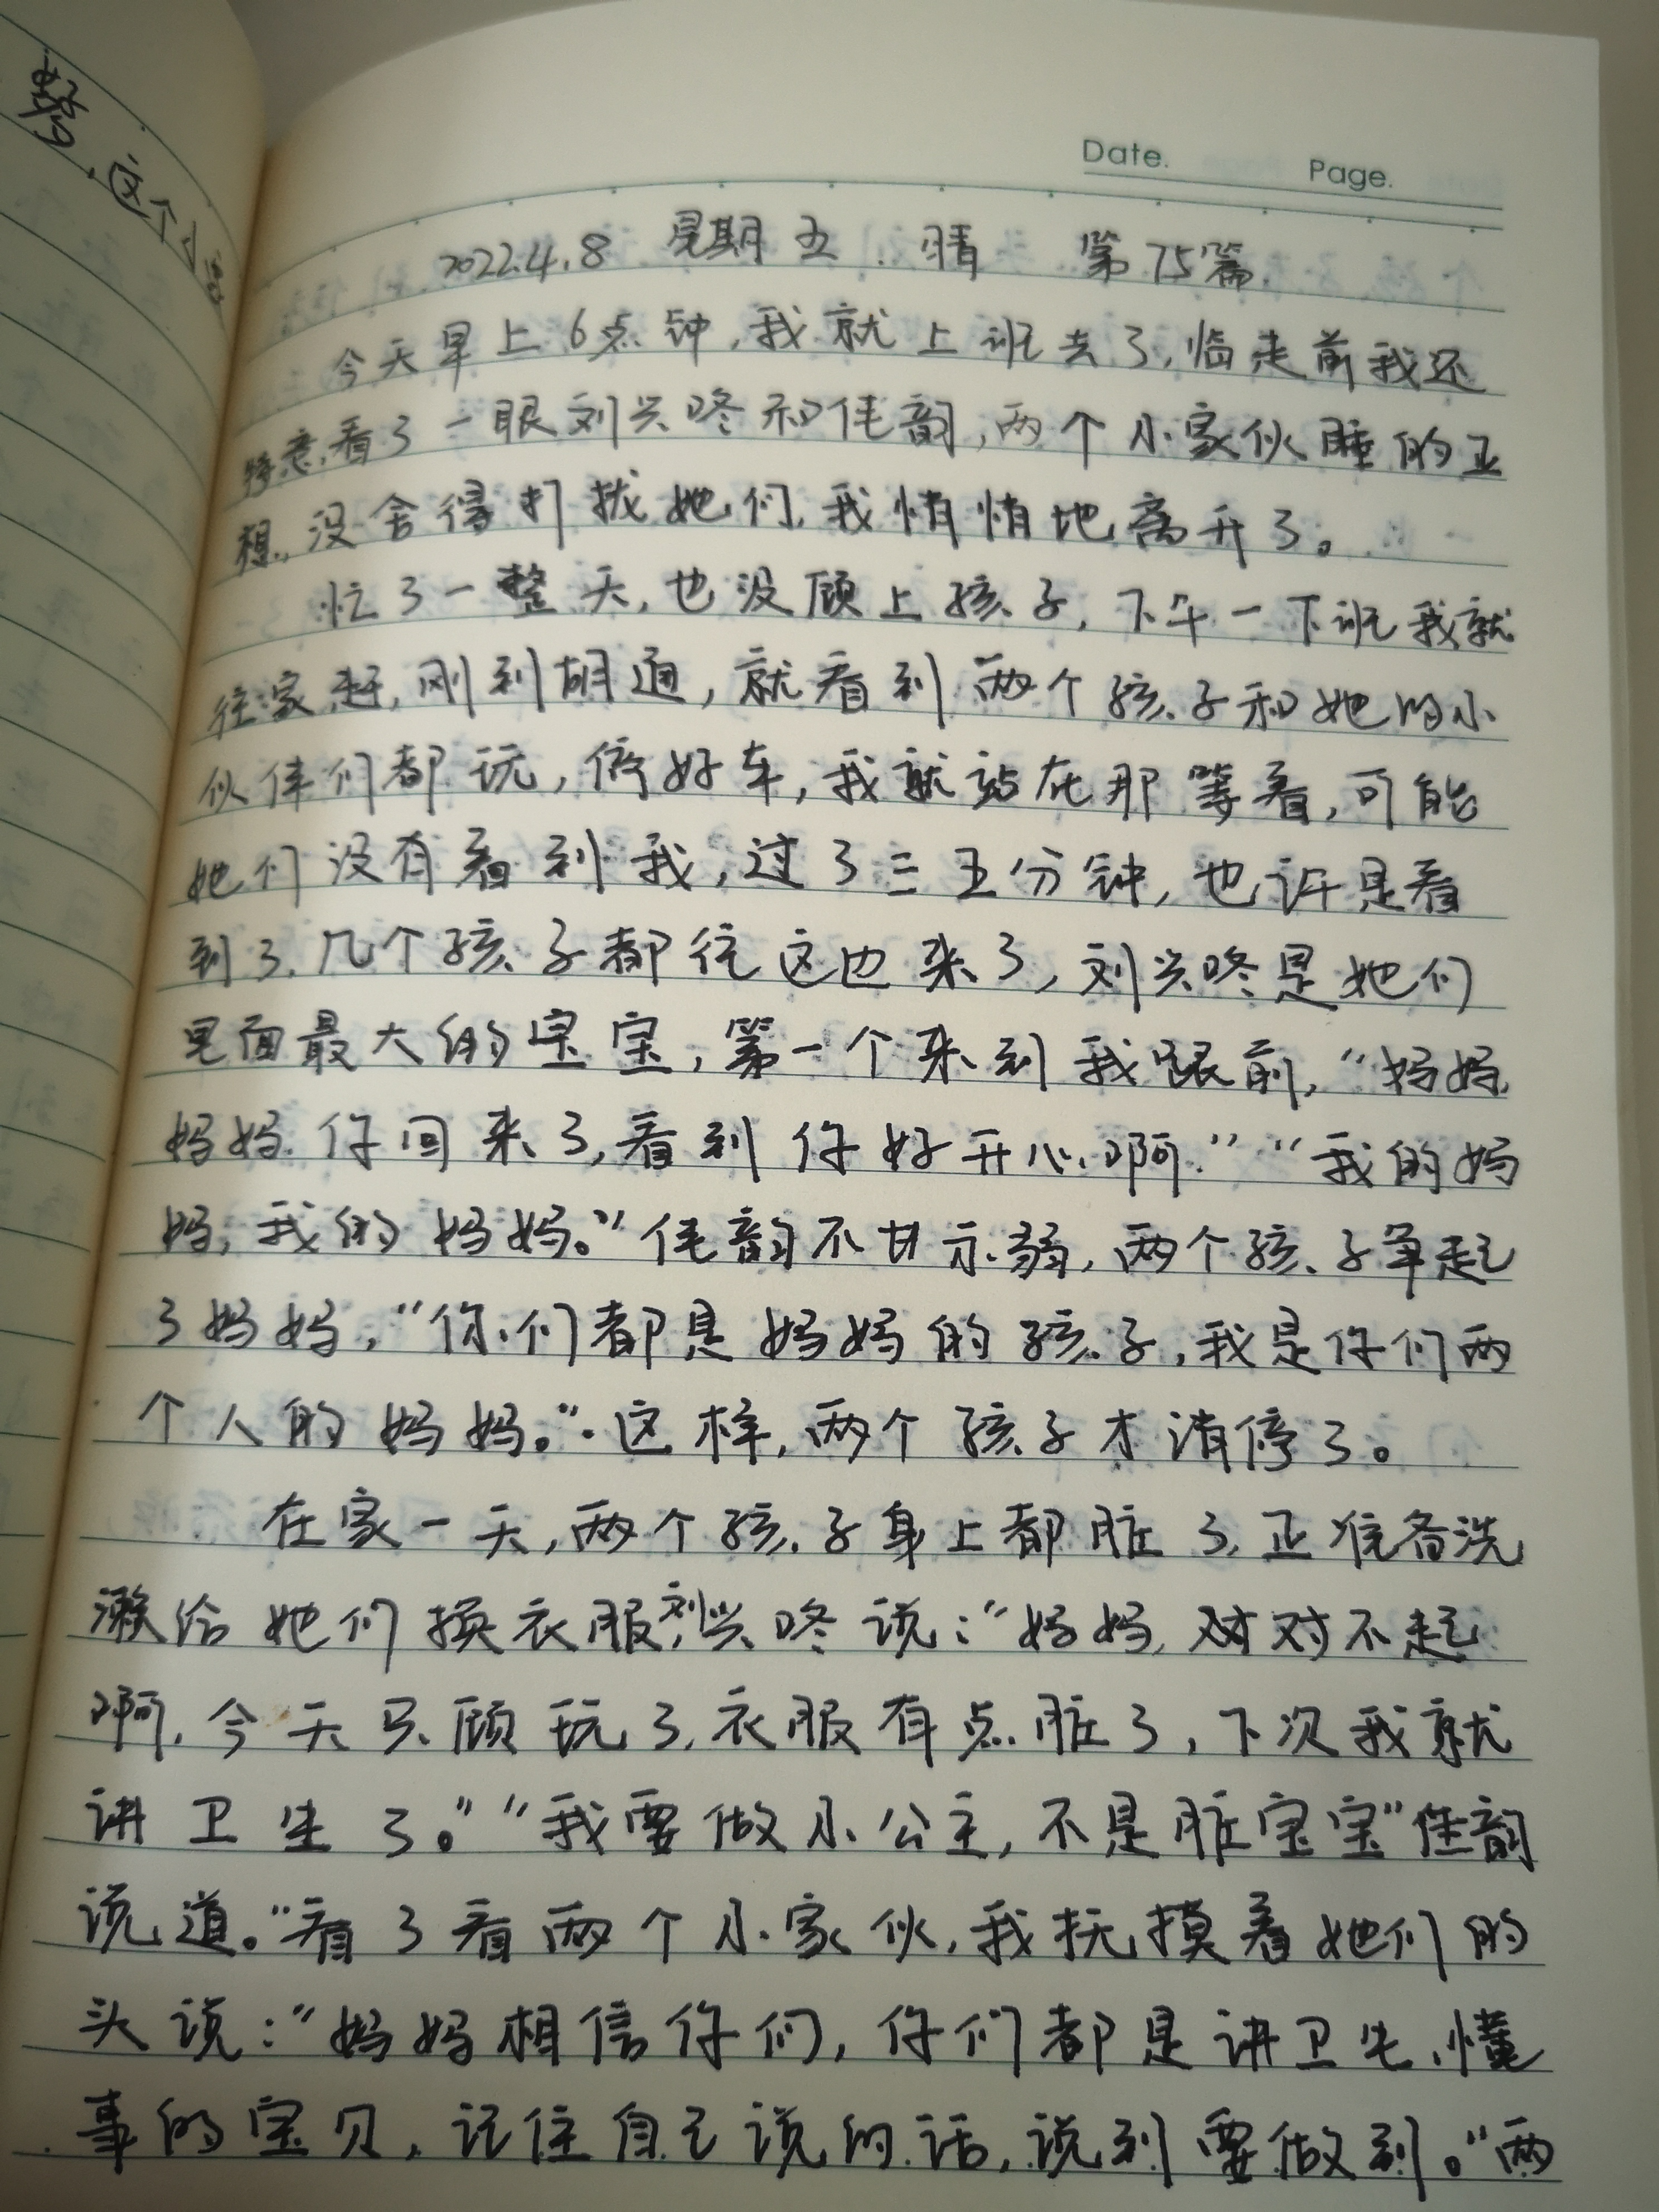 Date.
Page.
2022.4.8 星期五 晴 第75篇
今天早上6点钟,我就上班去了,临走前我还
特意看了一眼刘兴咚和佳韵,两个小家伙睡的正
想,没舍得打扰她们,我悄悄地离开了。
忙了一整天,也没顾上孩子,下午一下班我就
往家赶,刚到胡通,就看到两个孩子和她的小
伙伴们都玩,停好车,我就站在那等着,可能
她们没有看到我,过了三五分钟,也许是看
到了,几个孩子都往这边来了,刘兴咚是她们
里面最大的宝宝,第一个来到我跟前,“妈妈
妈妈,你回来了,看到你好开心啊.”“我的妈
妈,我的妈妈。”佳韵不甘示弱,两个孩子争起
了妈妈,“你们都是妈妈的孩子,我是你们两
个人的妈妈。”这样,两个孩子才消停了。
在家一天,两个孩子身上都脏了,正准备洗
濑给她们换衣服,刘兴咚说:“妈妈,对对不起
啊,今天只顾玩了,衣服有点脏了,下次我就
讲卫生了。”“我要做小公主,不是脏宝宝”佳韵
说道。“看了看两个小家伙,我抚摸着她们的
头说:“妈妈相信你们,你们都是讲卫生、懂
事的宝贝,记住自己说的话,说到要做到。”两
这个